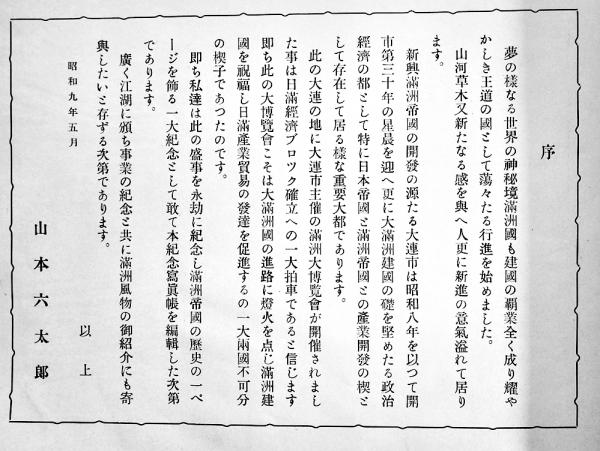 序
夢の樣なる世界の神秘境滿洲國も建國の覇業全く成り耀や
かしき王道の國として蕩々たる行進を始めました。
山河草木又新たなる感を與へ人更に新進の意氣溢れて居り
ます。
新興滿洲帝國の開發の源たる大連市は昭和八年を以つて開
市第三十年の星晨を迎へ更に大滿洲建國の礎を堅めたる政治
經濟の都として特に日本帝國と滿洲帝國との產業開發の楔と
して存在して居る樣な重要大都であります。
此の大連の地に大連市主催の滿洲大博覽會が開催されまし
た事は日滿經濟ブロツク確立への一大拍車であると信じます
即ち此の大博覽會こそは大滿洲國の進路に燈火を点じ滿洲建
國を祝福し日滿產業貿易の發達を促進するの一大兩國不可分
の楔子であつたのです。
即ち私達は此の盛事を永劫に紀念し滿洲帝國の歷史の一ペ
ージを飾る一大紀念として敢て本紀念寫眞帳を編輯した次第
であります。
廣く江湖に頒ち事業の紀念と共に滿洲風物の御紹介にも寄
與したいと存ずる次第であります。
以上
昭和九年五月
山本六太郎